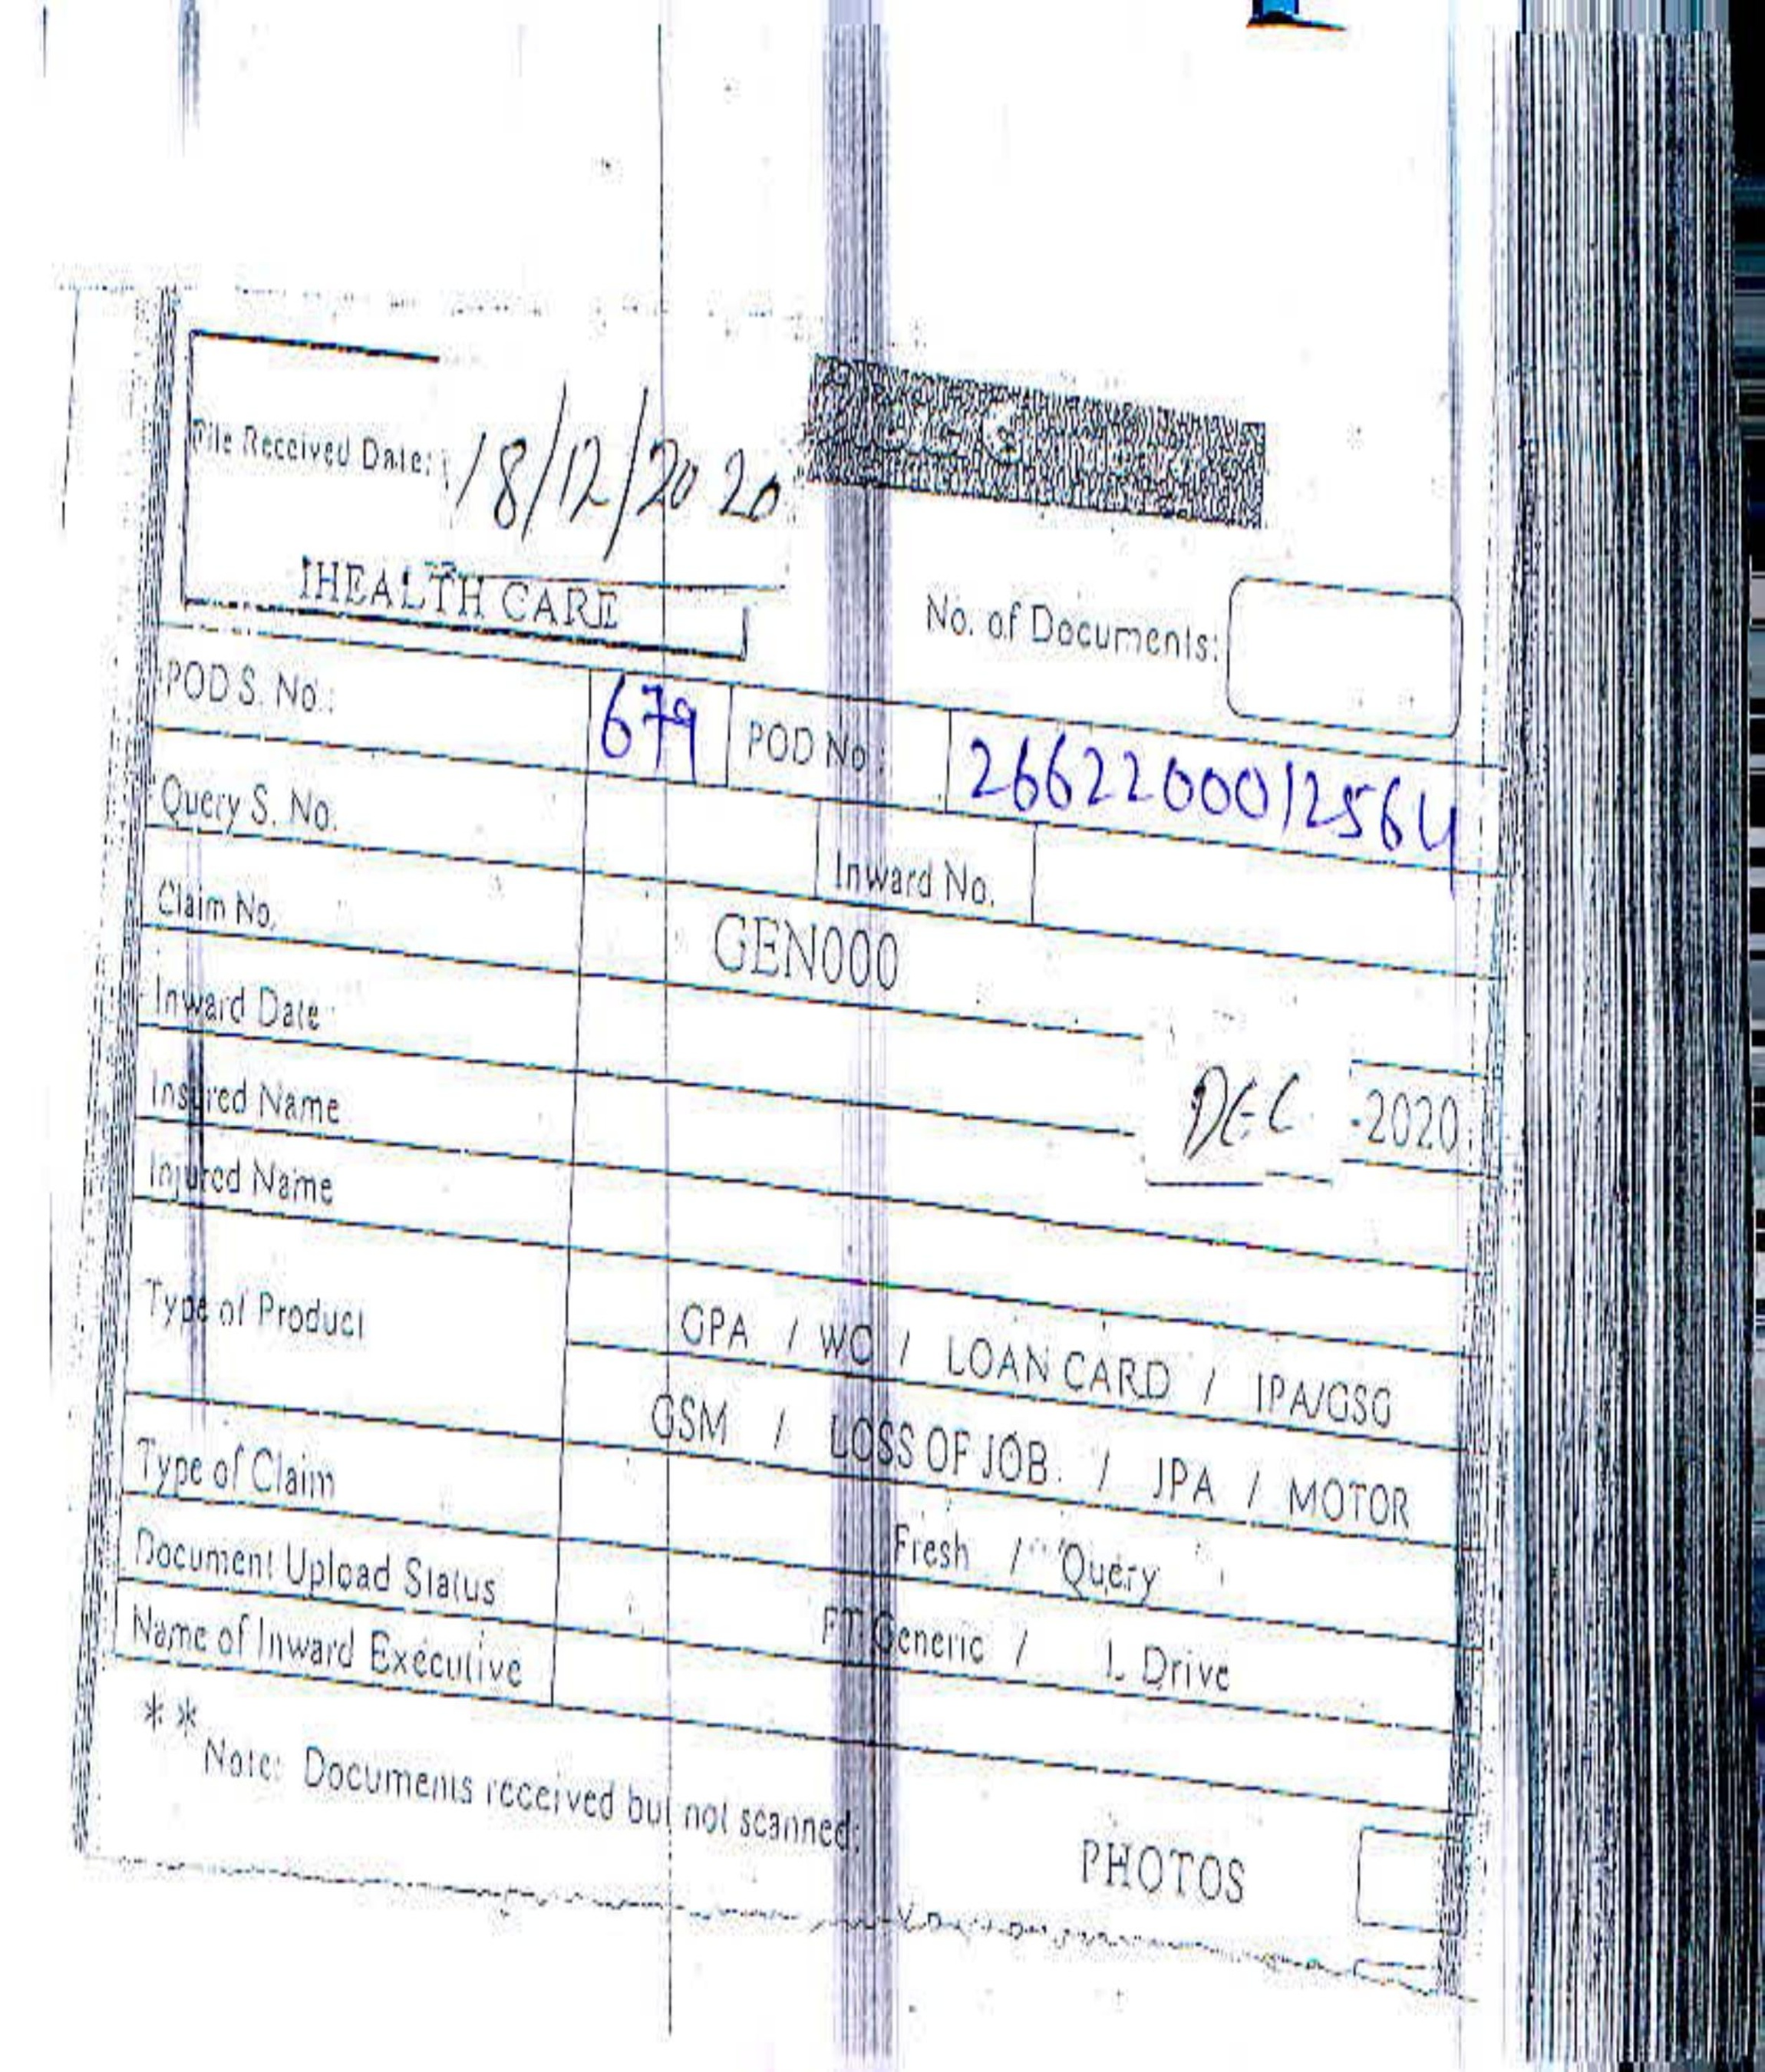 File Received Date: 18/12/2020
IHEALTH CARE
No. of Documents:
POD S. No.: 679 POD No.: 2662200012564
Query S. No. Inward No.
Claim No. GEN000
Inward Date DEC -2020
Insured Name
Injured Name
Type of Product GPA / WC / LOAN CARD / IPA/GSG
GSM / LOSS OF JOB / JPA / MOTOR
Type of Claim Fresh / Query
Document Upload Status FT Generic / L Drive
Name of Inward Executive
** Note: Documents received but not scanned: PHOTOS